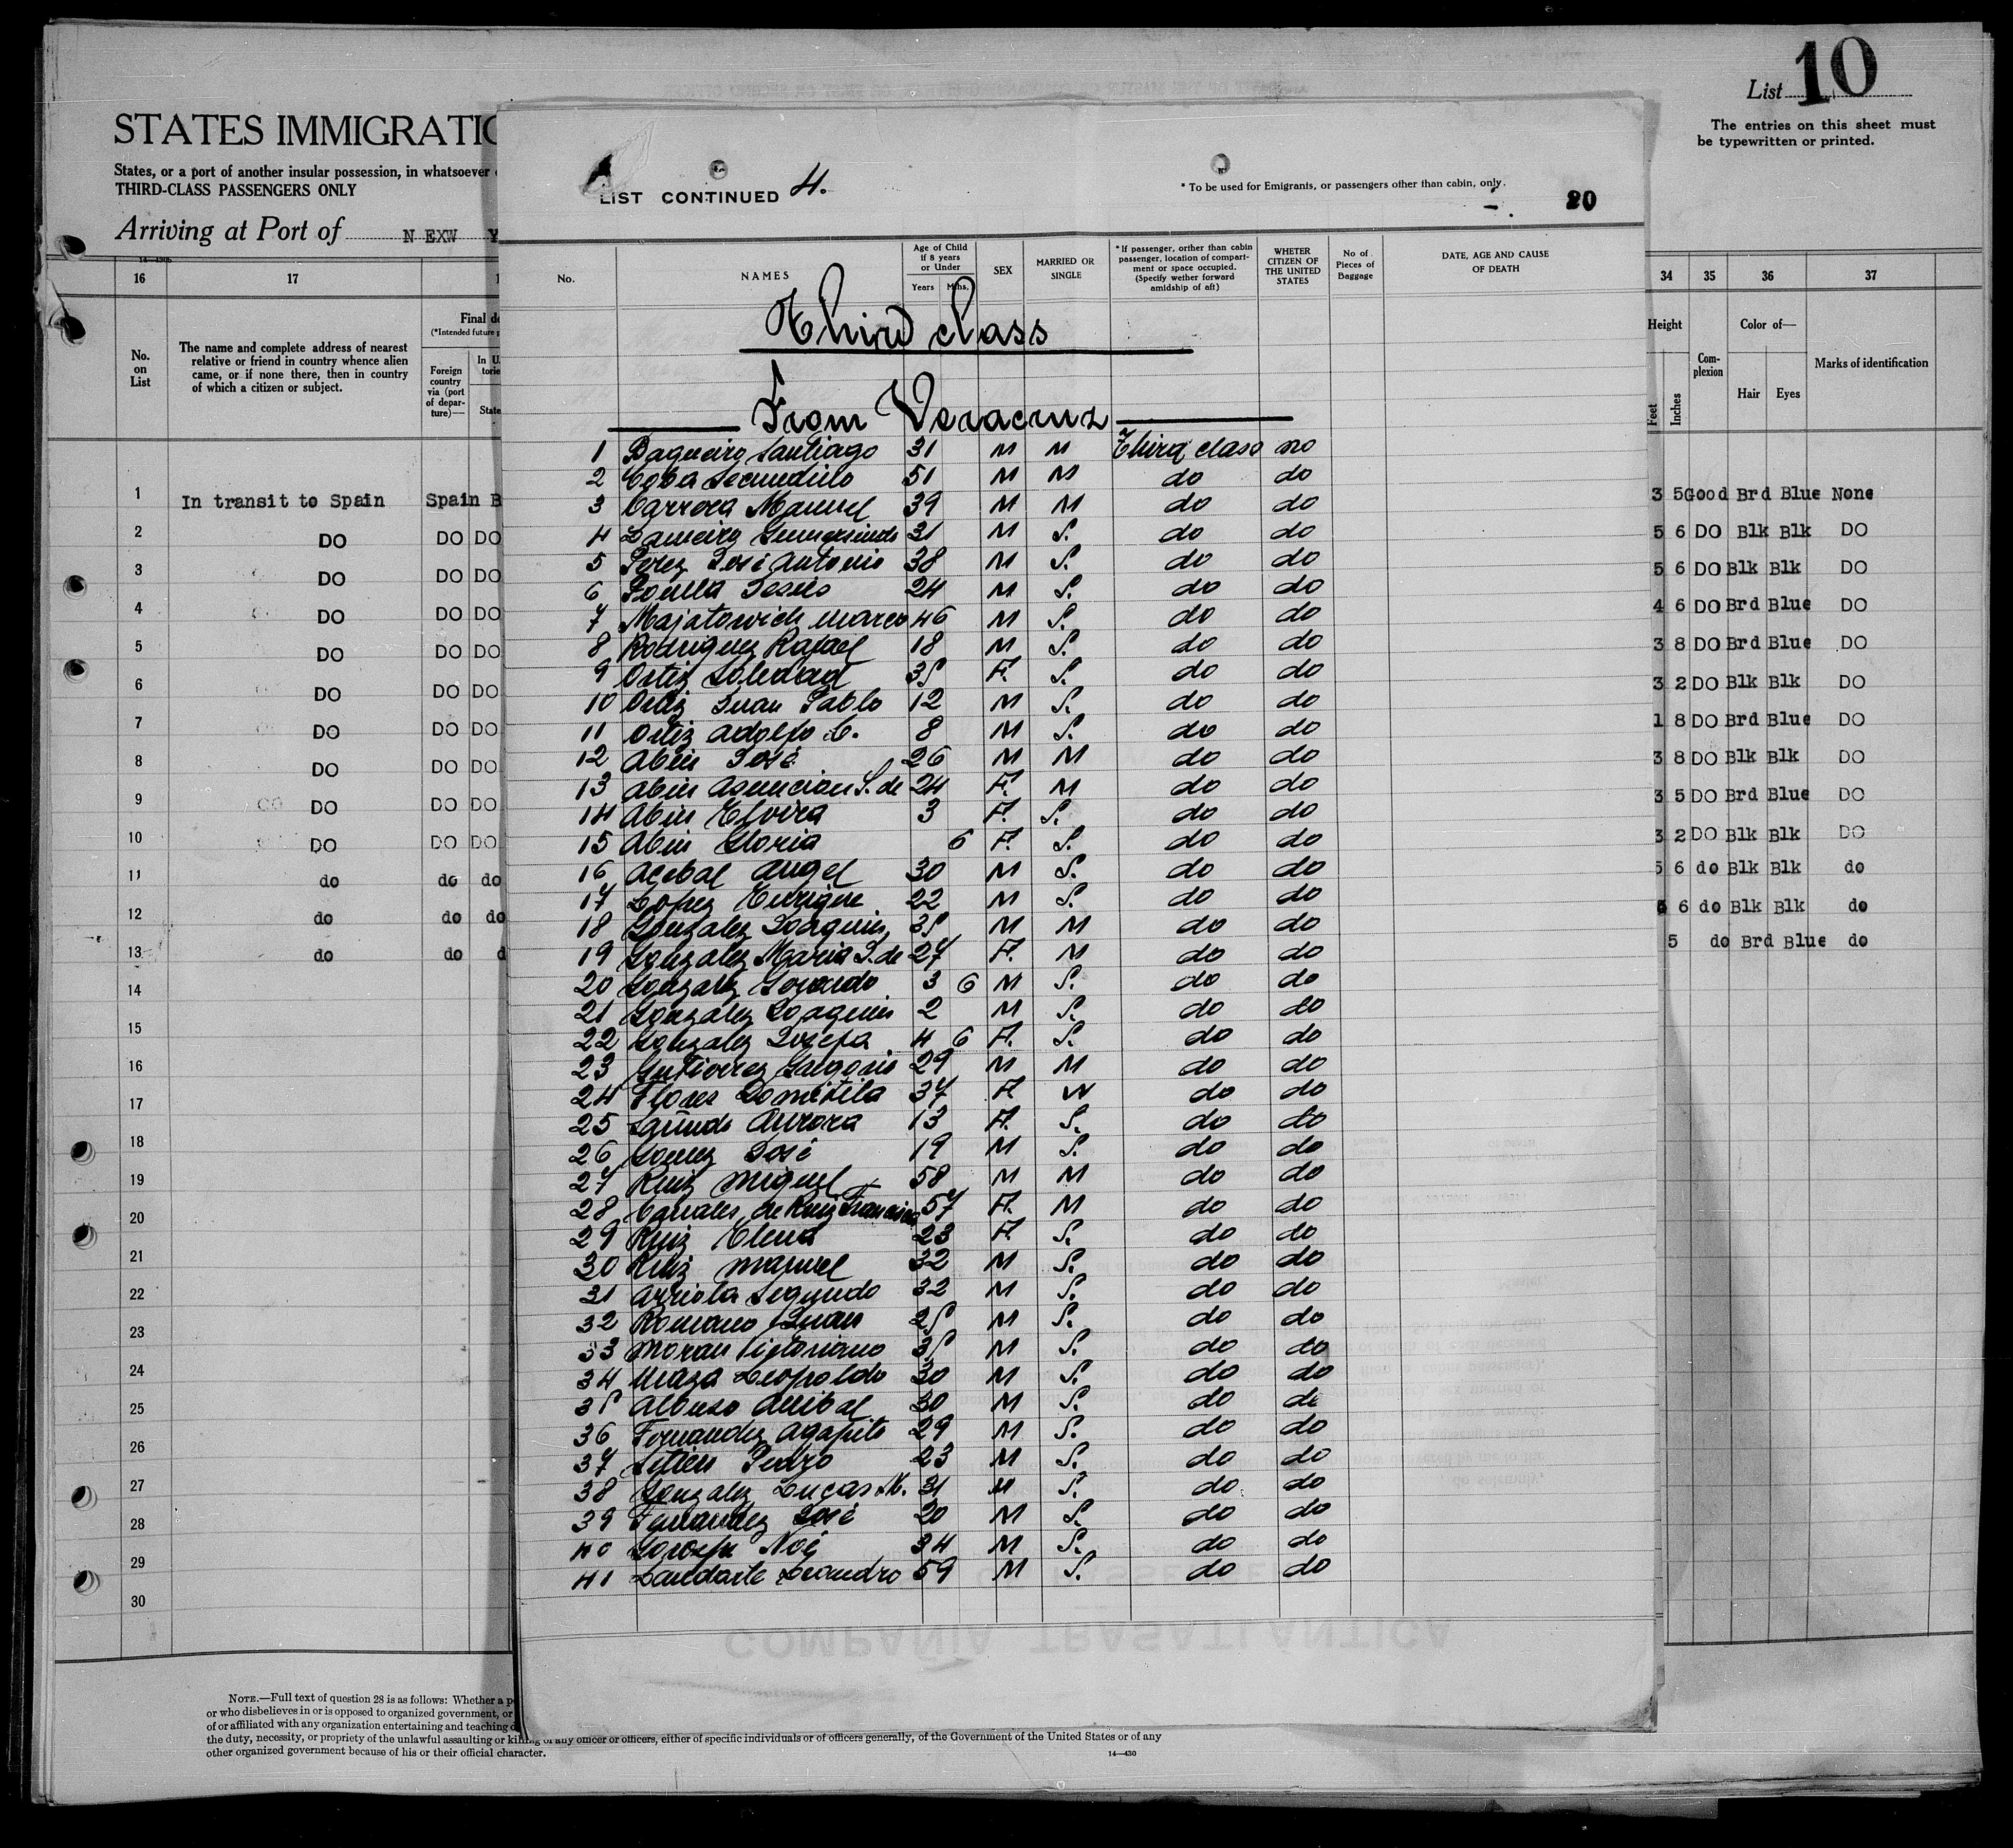 List 10
The entries on this sheet must
be typewritten or printed.
STATES IMMIGRATIO
States, or a port of another insular possession, in whatsoever
THIRD-CLASS PASSENGERS ONLY
Arriving at Port of N EXW Y
16 17
No. on List
The name and complete address of nearest
relative or friend in country whence alien
came, or if none there, then in country
of which a citizen or subject.
Final de
(*Intended future p
Foreign country via (port of depar-ture)—
In U.
State
1 In transit to Spain Spain B
2 DO DO DO
3 DO DO DO
4 DO DO DO
5 DO DO DO
6 DO DO DO
7 DO DO DO
8 DO DO DO
9 DO DO DO
10 DO DO DO
11 do do do
12 do do do
13 do do d
14
15
16
17
18
19
20
21
22
23
24
25
26
27
28
29
30
LIST CONTINUED 4.
* To be used for Emigrants, or passengers other than cabin, only.
20
No.
NAMES
Age of Child if 8 years or Under
Years Mths.
SEX
MARRIED OR SINGLE
* If passenger, orther than cabin passenger, location of compart-ment or space occupied. (Specify wether forward amidship of aft)
WHETER CITIZEN OF THE UNITED STATES
No of Pieces of Baggage
DATE, AGE AND CAUSE OF DEATH
Third class
From Veracruz
1 Baqueiro Santiago 31 M M Third class no
2 Coba Secundino 51 M M do do
3 Carrera Manuel 39 M M do do
4 Lameiro Gumersindo 31 M S. do do
5 Perez José Antonio 38 M S. do do
6 Jesús 24 M S. do do
7 Majatowich Marco 46 M S. do do
8 Rodriguez Rafael 18 M S. do do
9 Ortiz Soledad 35 F. S. do do
10 Ortiz Juan Pablo 12 M S. do do
11 Ortiz Adolfo C. 8 M S. do do
12 Abin José 26 M M do do
13 Abin Asuncion S. de 24 F. M do do
14 Abin Elvira 3 F. S. do do
15 Abin Gloria 6 F. S. do do
16 Acebal Angel 30 M S. do do
17 Lopez Enrique 22 M S. do do
18 Gonzalez Joaquin 35 M M do do
19 Gonzalez Maria S. de 27 F. M do do
20 Gonzalez Gerardo 3 6 M S. do do
21 Gonzalez Joaquin 2 M S. do do
22 Gonzalez Josefa 4 6 F. S. do do
23 Gutierrez Gregorio 29 M M do do
24 Flores Domitila 37 F. W do do
25 Aurora 13 F. S. do do
26 Gomez José 19 M S. do do
27 Ruiz Miguel 58 M M do do
28 Canales de Ruiz Francisca 57 F. M do do
29 Ruiz Elena 23 F. S. do do
30 Ruiz Manuel 32 M S. do do
31 Arriola Segundo 32 M S. do do
32 Romano Juan 25 M S. do do
33 Moran Victoriano 35 M S. do do
34 Maza Leopoldo 30 M S. do do
35 Albuso Anibal 30 M S. do do
36 Fernandez Agapito 29 M S. do do
37 Setien Pedro 23 M S. do do
38 Gonzalez Lucas M. 31 M S. do do
39 Fernandez José 20 M S. do do
40 Noé 34 M S. do do
41 Landarte Leandro 59 M S. do do
COMPAÑIA TRASATLANTICA
34 35 36 37
Height
Feet Inches
Com-plexion
Color of—
Hair Eyes
Marks of identification
3 5 Good Brd Blue None
5 6 DO Blk Blk DO
5 6 DO Blk Blk DO
4 6 DO Brd Blue DO
3 8 DO Brd Blue DO
3 2 DO Blk Blk DO
1 8 DO Brd Blue DO
3 8 DO Blk Blk DO
3 5 DO Brd Blue DO
3 2 DO Blk Blk DO
5 6 do Blk Blk do
6 6 do Blk Blk do
5 do Brd Blue do
NOTE.—Full text of question 28 is as follows: Whether a p
or who disbelieves in or is opposed to organized government, or
of or affiliated with any organization entertaining and teaching
the duty, necessity, or propriety of the unlawful assaulting or killing of any officer or officers, either of specific individuals or of officers generally, of the Government of the United States or of any
other organized government because of his or their official character.
14—430